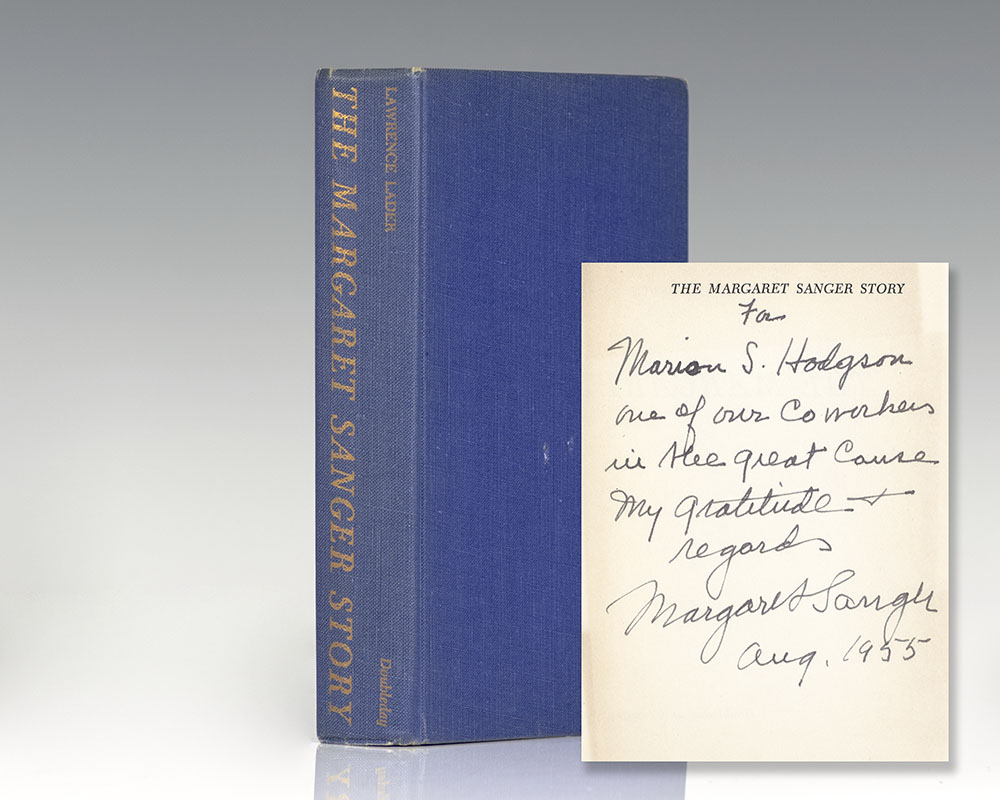 LAWRENCE LADER
THE MARGARET SANGER STORY
Doubleday
THE MARGARET SANGER STORY
For
Marion S. Hodgson
one of our Coworkers
in the great Cause
My gratitude +
regards
Margaret Sanger
Aug. 1955